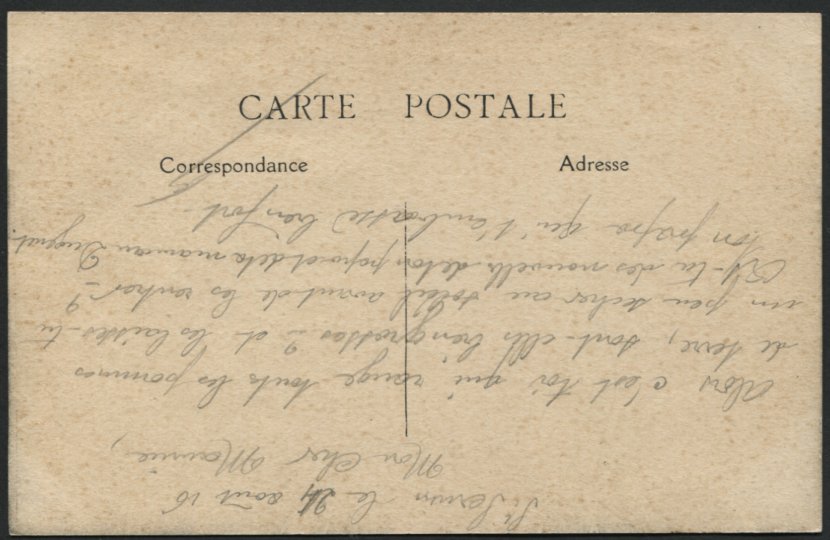 CARTE POSTALE
Correspondance Adresse
le 24 août 16
Mon cher Maurice,
Alors c'est toi qui range touts les pommes
de terre, sont-elles bien grosses ? et les laisses-tu
un peu secher au soleil avant de les rentrer ?
As-tu des nouvelles de ton papa et de ta maman
ton papa qui t'embrasse bien fort.